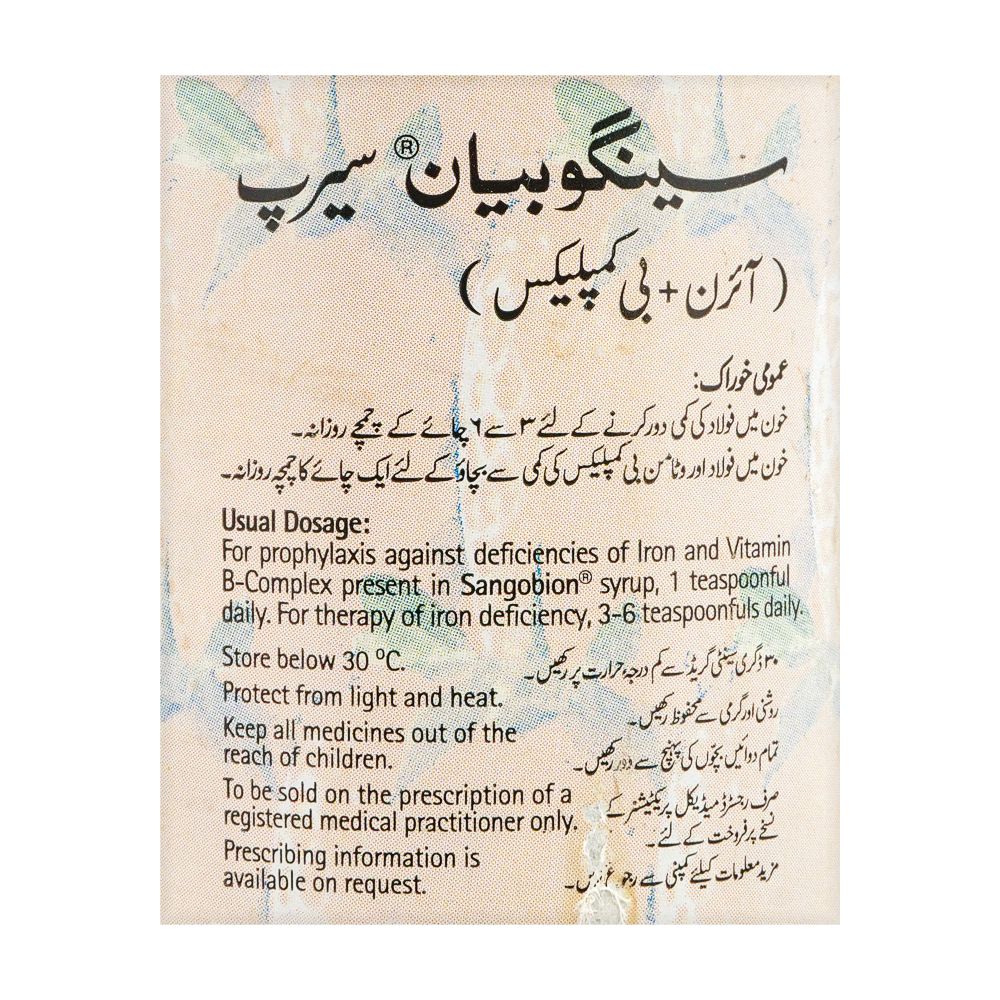 سینگوبیان® سیرپ
(آئرن + بی کمپلیکس)
عمومی خوراک:
خون میں فولاد کی کمی دور کرنے کے لئے ۳ سے ۶ چائے کے چمچے روزانہ۔
خون میں فولاد اور وٹامن بی کمپلیکس کی کمی سے بچاؤ کے لئے ایک چائے کا چمچہ روزانہ۔
Usual Dosage:
For prophylaxis against deficiencies of Iron and Vitamin
B-Complex present in Sangobion® syrup, 1 teaspoonful
daily. For therapy of iron deficiency, 3-6 teaspoonfuls daily.
Store below 30 ºC.
۳۰ ڈگری سینٹی گریڈ سے کم درجۂ حرارت پر رکھیں۔
Protect from light and heat.
روشنی اور گرمی سے محفوظ رکھیں۔
Keep all medicines out of the
reach of children.
تمام دوائیں بچّوں کی پہنچ سے دور رکھیں۔
To be sold on the prescription of a
registered medical practitioner only.
صرف رجسٹرڈ میڈیکل پریکٹیشنر کے
نسخے پر فروخت کے لئے۔
Prescribing information is
available on request.
مزید معلومات کیلئے کمپنی سے رجوع کریں۔